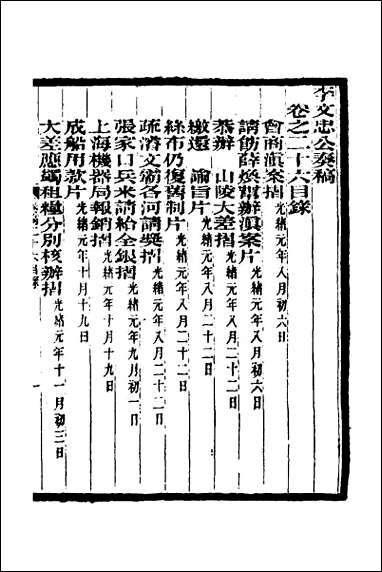 李文忠公奏稿
卷之二十六目錄
會商滇案摺光緒元年八月初六日
請飭薛煥會辦滇案片光緒元年八月初六日
恭辦　山陵大差摺光緒元年八月二十二日
繳還　諭旨片光緒元年八月二十二日
絲布仍復舊制片光緒元年八月二十二日
疏濬文霸各河請獎摺光緒元年八月二十二日
張家口兵米請給全銀摺光緒元年九月初一日
上海機器局報銷摺光緒元年十月十九日
成船用款片光緒元年十月十九日
大差應蠲租糧分別核辦摺光緒元年十一月初三日